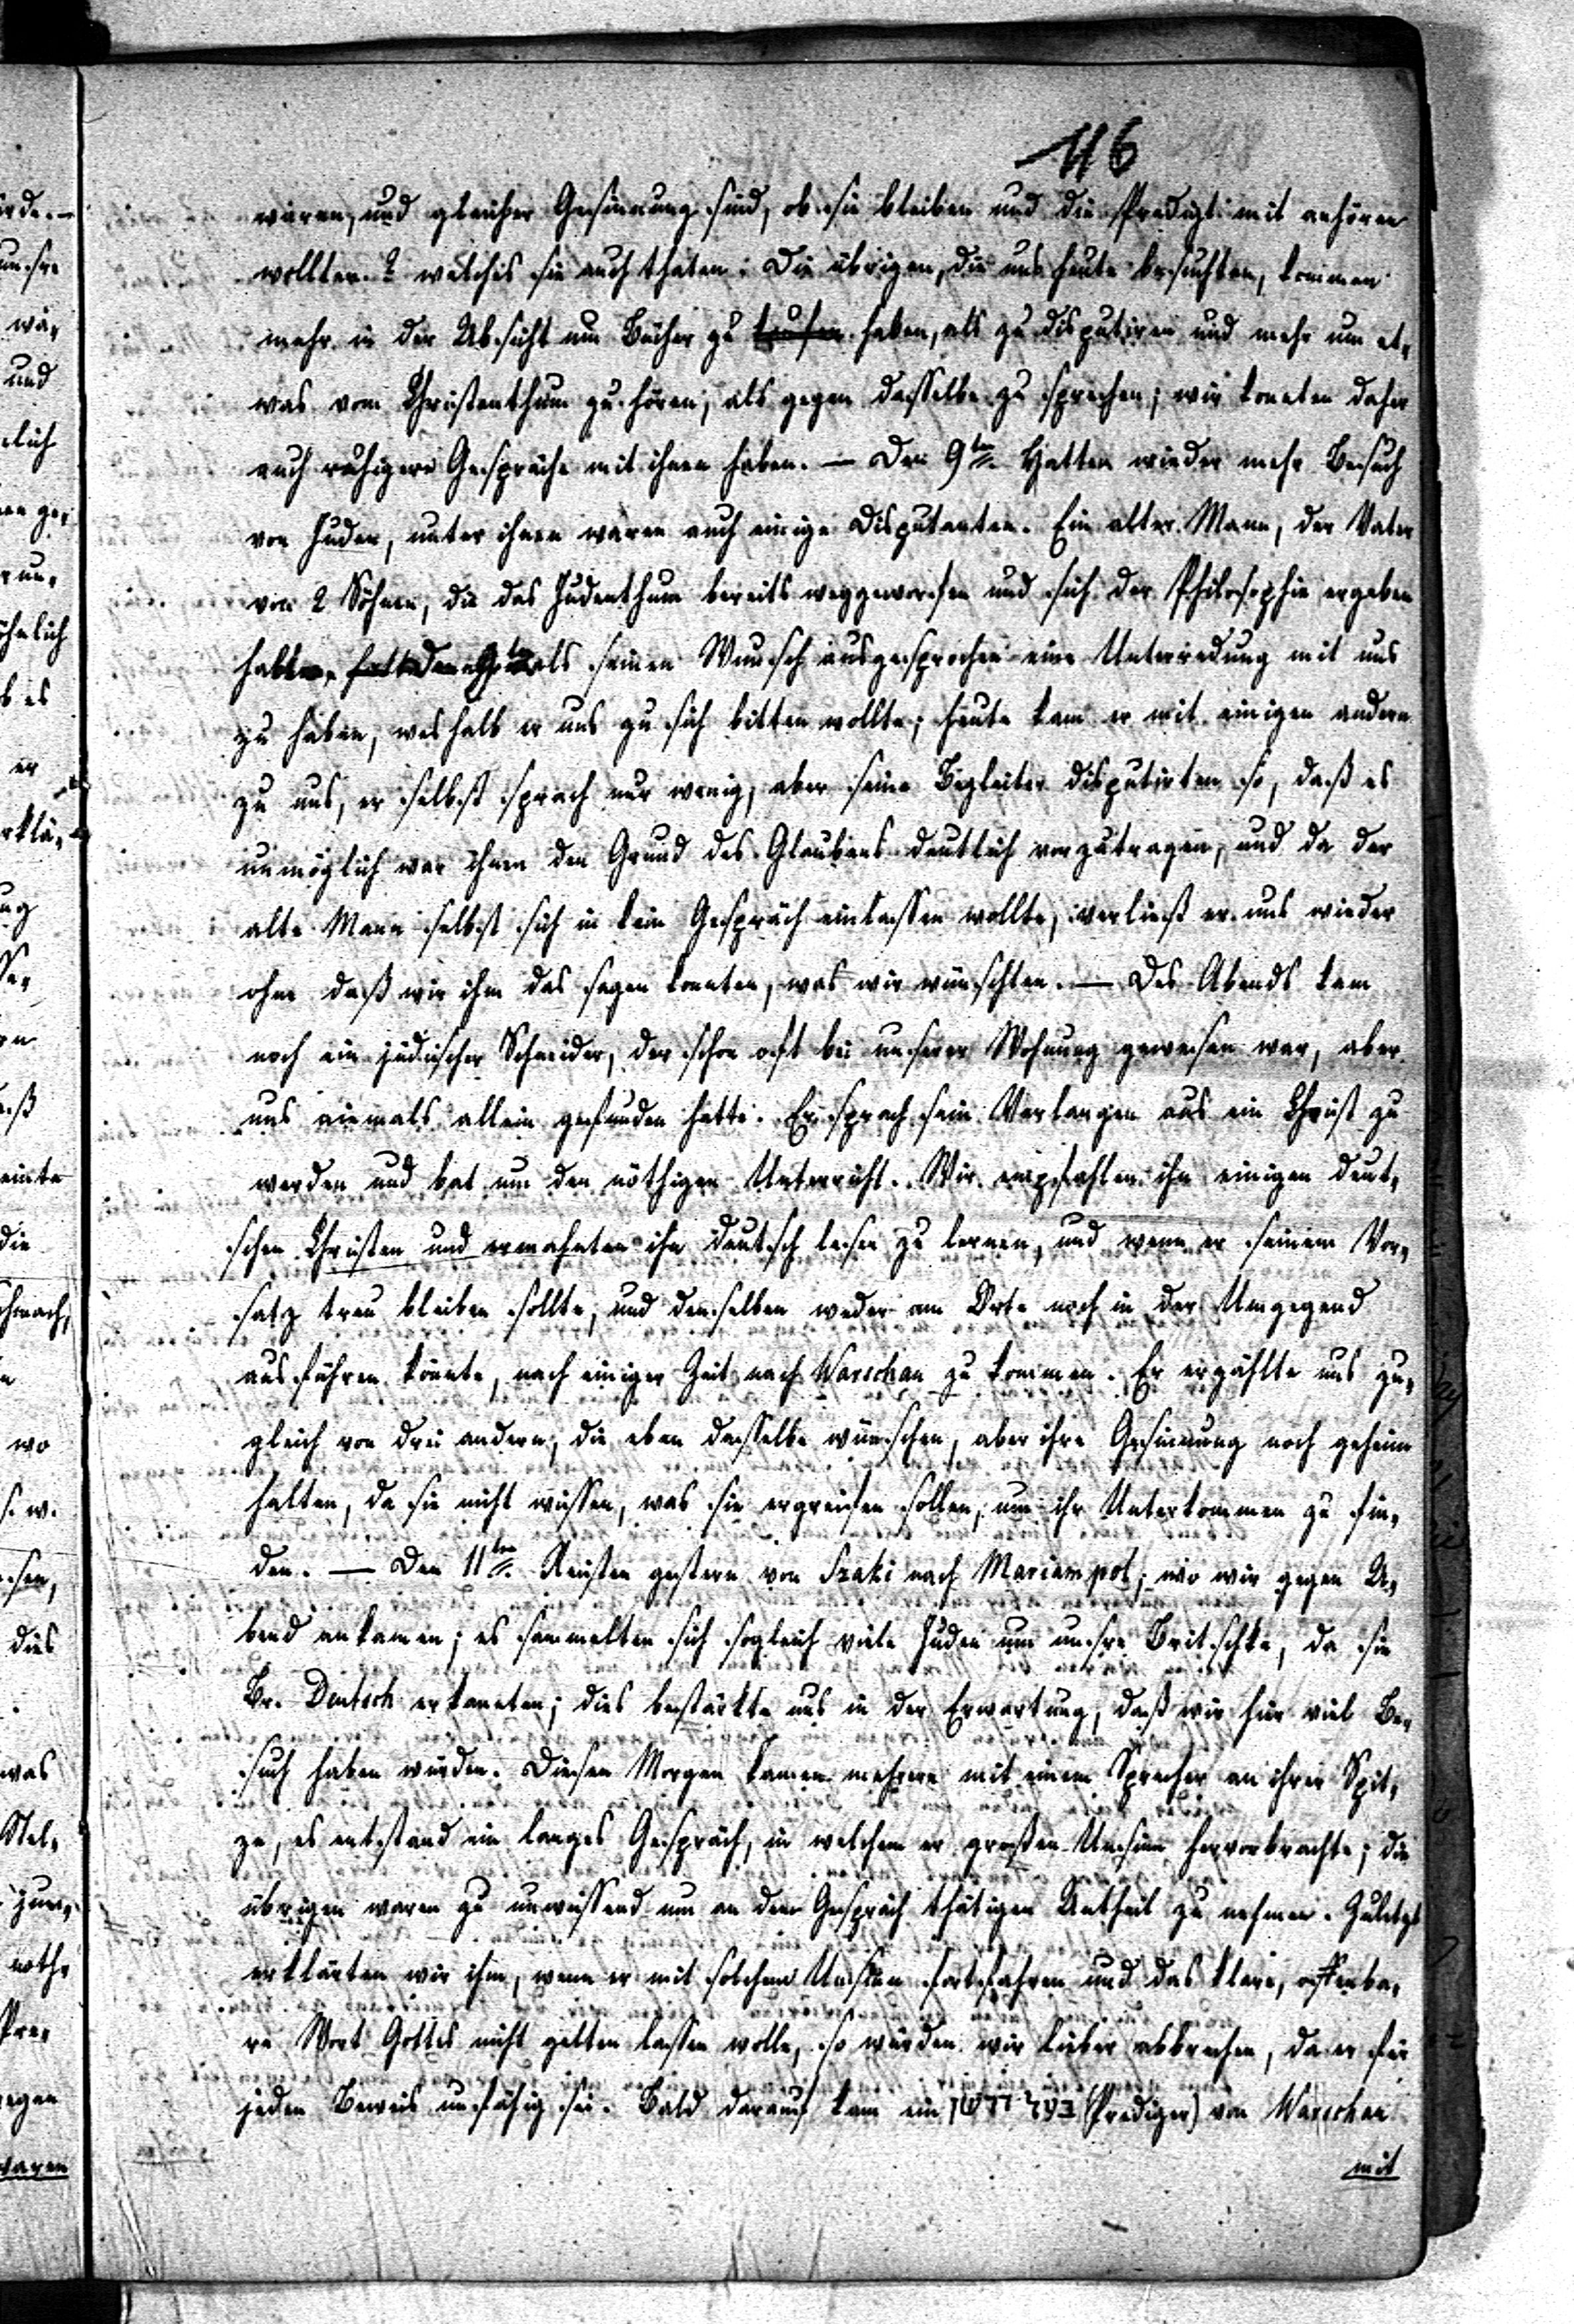 116
waren, und gleicher Gesinnung sind, ob sie bleiben und die Predigt mit anhören
wollten? welches sie auch thaten. Die übrigen, die uns heute besuchten, kommen
mehr in der Absicht um Bücher zu kaufen haben, als zu disputiren und mehr um et-
was vom Christenthum zu hören, als gegen dasselbe zu sprechen; wir konnten daher
auch ruhigere Gespräche mit ihnen haben. — Den 9ten Hatten wieder mehr Besuch
von Juden, unter ihnen waren auch einige Disputanten. Ein alter Mann, der Vater
von 2 Söhnen, die das Judenthum bereits weggeworfen und sich der Philosophie ergeben
haben, hatte als seinen Wunsch ausgesprochen eine Unterredung mit uns
zu haben, weshalb er uns zu sich bitten wollte; heute kam er mit einigen andern
zu uns, er selbst sprach nur wenig, aber seine Begleiter disputirten so, daß es
unmöglich war ihnen den Grund des Glaubens deutlich vorzutragen, und da der
alte Mann selbst sich in kein Gespräch einlassen wollte, verließ er uns wieder
ohne daß wir ihm das sagen konnten, was wir wünschten. — Des Abends kam
noch ein jüdischer Schneider, der schon oft bei unserer Wohnung gewesen war, aber
uns niemals allein gefunden hatte. Er sprach sein Verlangen aus ein Christ zu
werden und bat um den nöthigen Unterricht. Wir empfahlen ihn einigen deut-
schen Christen und ermahnten ihn deutsch lesen zu lernen, und wenn er seinem Vor-
satz treu bleiben sollte, und denselben weder am Orte noch in der Umgegend
ausführen könnte, nach einiger Zeit nach Warschau zu kommen. Er erzählte uns zu-
gleich von drei andern, die eben dasselbe wünschen, aber ihre Gesinnung noch geheim
halten, da sie nicht wissen, was sie ergreifen sollen, um ihr Unterkommen zu fin-
den. — Den 11ten Reisten gestern von Szaki nach Mariampol, wo wir gegen A-
bend ankamen; es sammelten sich sogleich viele Juden um unsre Britschke, da sie
Br. Deutsch erkannten; dies bestärkte uns in der Erwartung, daß wir hier viel Be-
such haben würden. Diesen Morgen kamen mehrere mit einem Sprecher an ihrer Spit-
ze, es entstand ein langes Gespräch, in welchem er großen Unsinn hervorbrachte; die
übrigen waren zu unwissend um an dem Gespräch thätigen Antheil zu nehmen. Zuletzt
erklärten wir ihm, wenn er mit solchem Unsinn fortfahren und das klare, offenba-
re Wort Gottes nicht gelten lassen wolle, so würden wir lieber abbrechen, da er für
jeden Beweis unfähig sei. Bald darauf kam ein (Prediger) von Warschau
mit